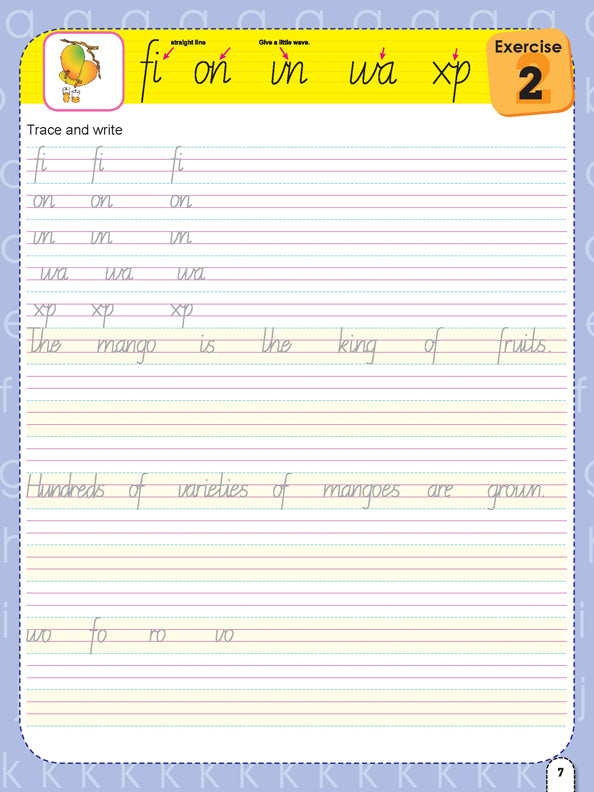 straight line
Give a little wave.
fi on vn wa xp
Exercise
2
Trace and write
fi fi fi
on on on
vn vn vn
wa wa wa
xp xp xp
The mango is the king of fruits.
Hundreds of varieties of mangoes are grown.
wo fo ro vo
7